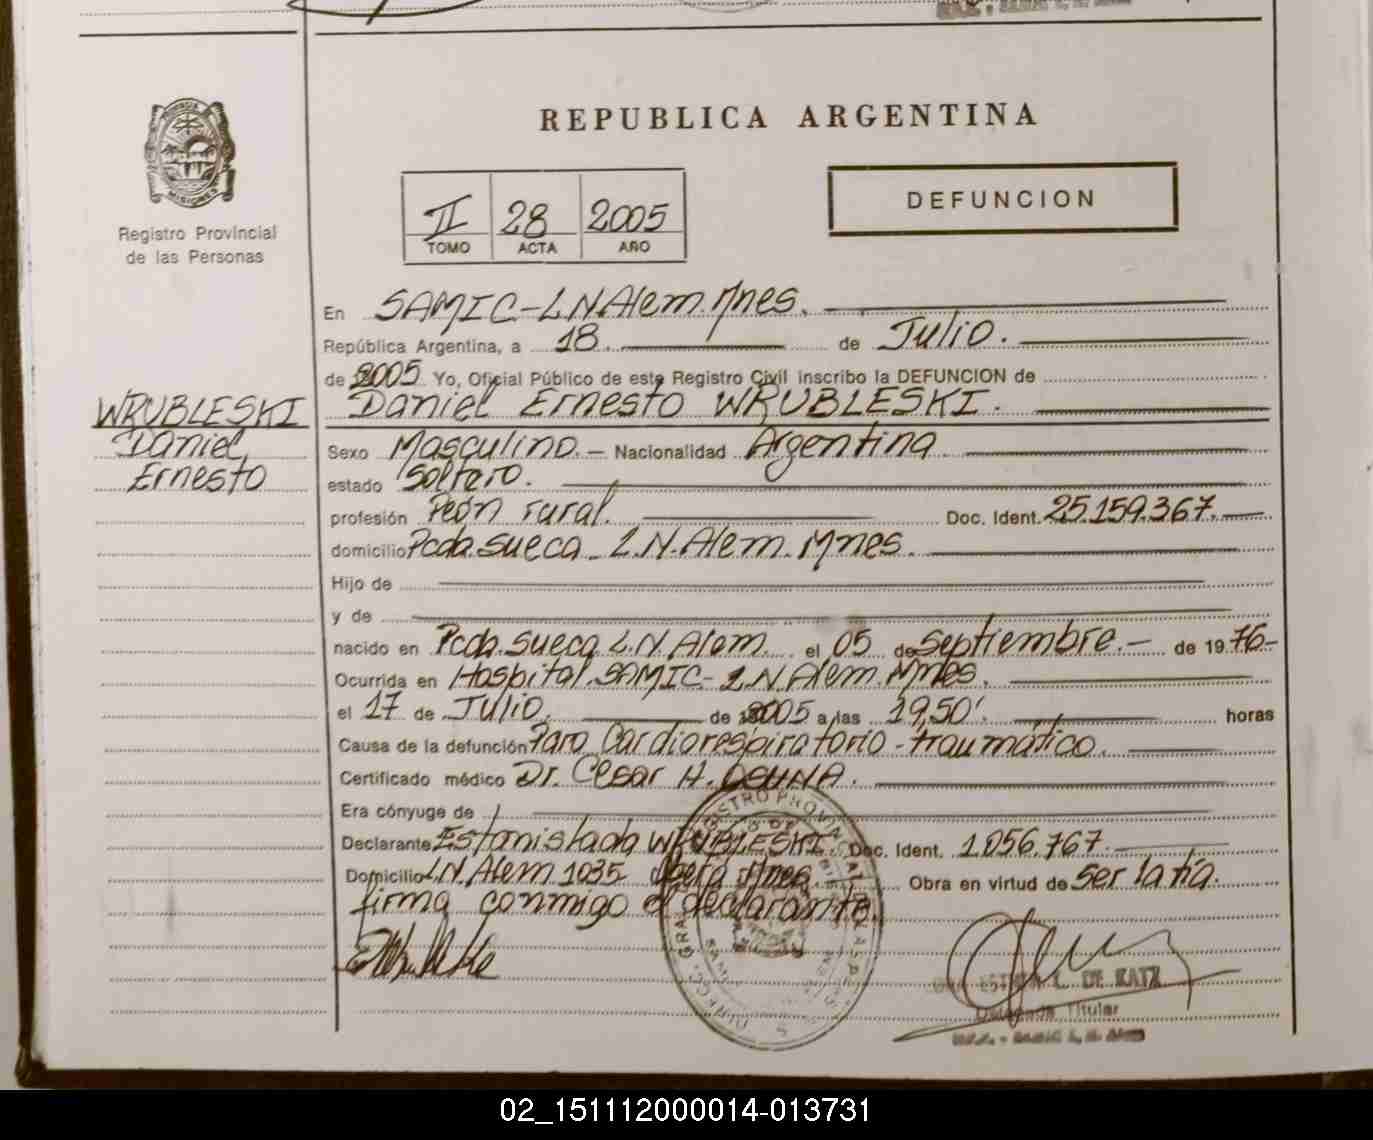 REPUBLICA ARGENTINA
PROVINCIA
MISIONES
Registro Provincial
de las Personas
II 28 2005
TOMO ACTA AÑO
DEFUNCION
En SAMIC-L.N.Alem.Mnes.
República Argentina, a 18. de Julio.
de 2005 Yo, Oficial Público de este Registro Civil inscribo la DEFUNCION de
Daniel Ernesto WRUBLESKI.
WRUBLESKI
Daniel
Ernesto
Sexo Masculino.- Nacionalidad Argentina
estado Soltero.
profesión Peón rural. Doc. Ident. 25.159.367.
domicilio Pcda.Sueca_L.N.Alem.Mnes.
Hijo de
y de
nacido en Pcda.Sueca L.N.Alem. el 05 de Septiembre.- de 1976-
Ocurrida en Hospital.SAMIC-L.N.Alem.Mnes.
el 17 de Julio. de 2005 a las 19,50'. horas
Causa de la defunción Paro Cardiorespiratorio-traumático.
Certificado médico Dr. Cesar A. OSUNA.
Era cónyuge de
Declarante Estanislada WRUBLESKI. Doc. Ident. 1.056.767.
Domicilio L.N.Alem 1035 Oberá Mnes. Obra en virtud de ser la tía.
firma conmigo el declarante.
L. DE KATZ
Delegada Titular
02_151112000014-013731